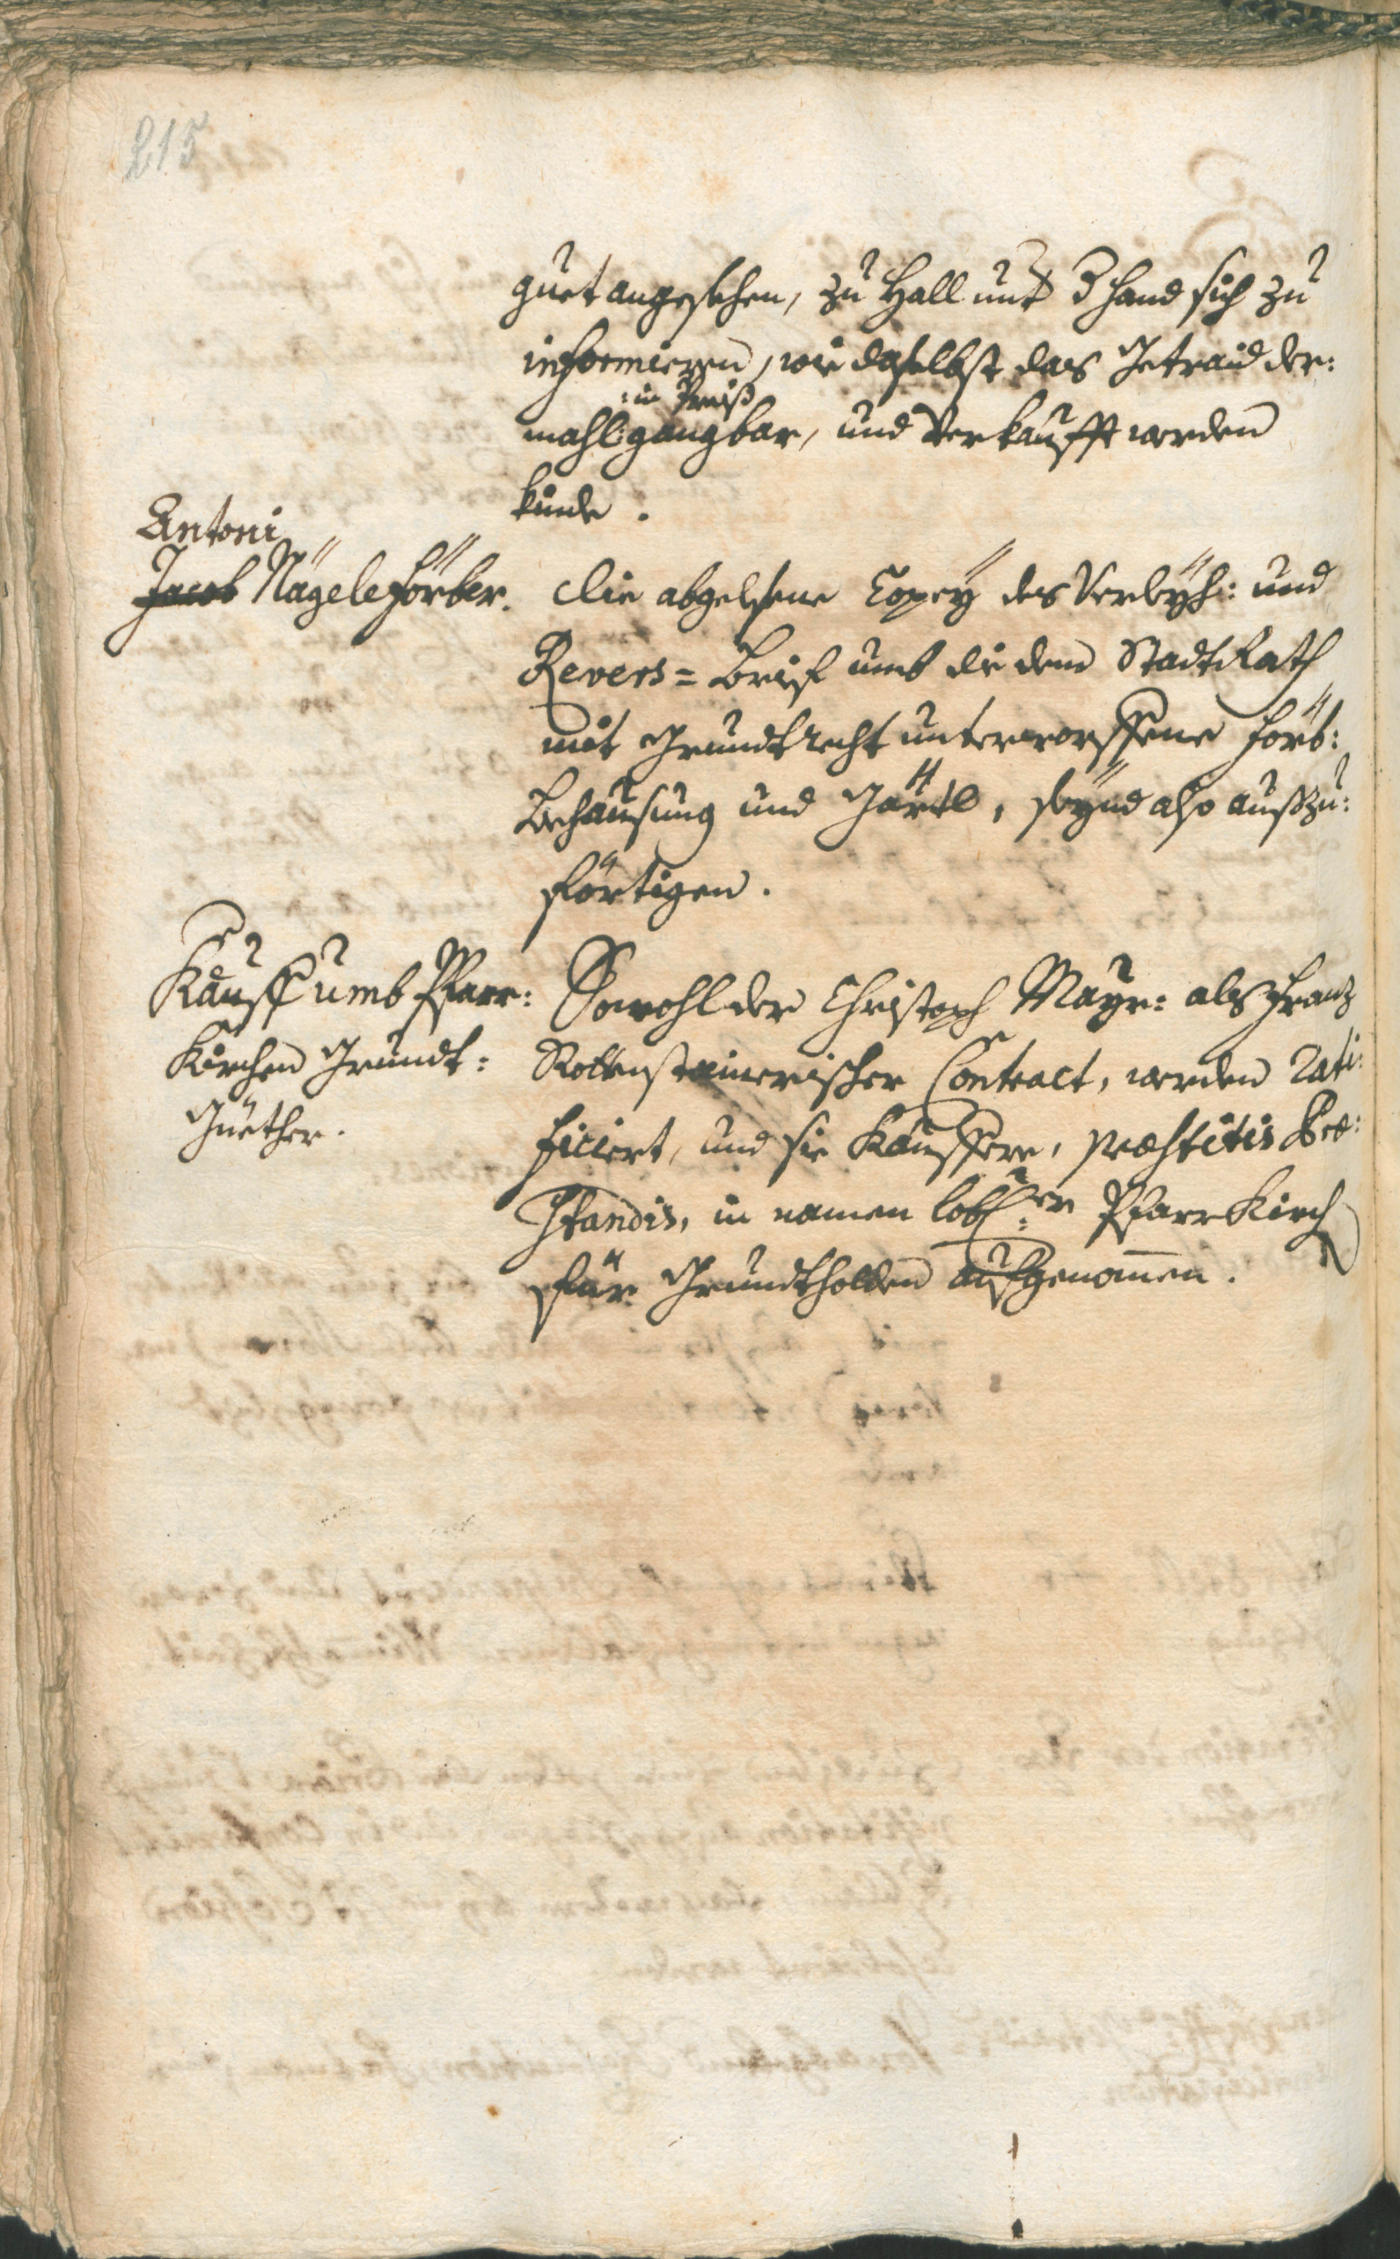 215
guet angesehen, zu Hall unt 3 hand sich zu
informieren, wie daselbst das Getraid der:
:in Preiß
mahl gangbar, und verkaufft werden
künde.
Antoni
Jacob Nägele Förber.
die abgelesene Copey des Verleyh: und
Revers= Brief umb die dem StadtRath
mit Grundtrecht unterworffene Förb:
Behausung und Gärtl, seynd also außzu:
förtigen.
Kauff umb Pfarr:
Kirchen Grundt:
Güether.
Sowohl der Christoph Mayr: als Franz
Rottenstainerischer Contract, werden rati:
ficiert, und sie Kauffere, præstitis Præ:
standis, in namen lobl:er Pfarr Kirch
für Grundtholden aufgenomen.